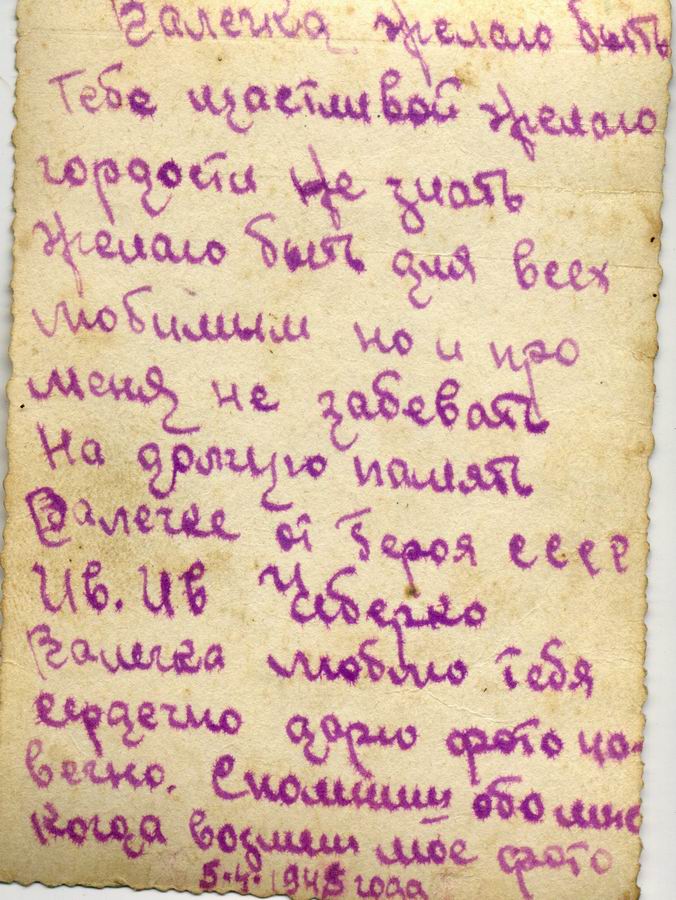 Валечка желаю быть
Тебе щастливой желаю
гордости не знать
желаю быть для всех
любимым но и про
меня не забевать
На долгую память
Валечке от Героя СССР
Ив. Ив
Валечка люблю тебя
сердечно дарю фото на-
вечно. Спомниш обо мне
когда возмеш мое фото
5.4.1945 года